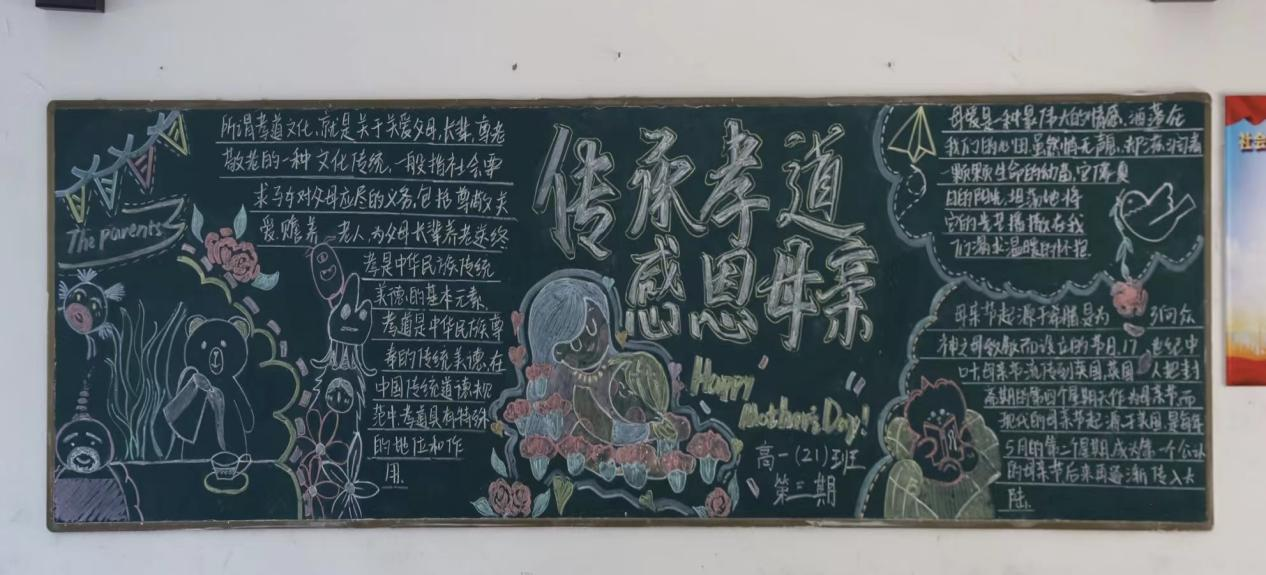 The parents
所谓孝道文化,就是关于关爱父母、长辈,尊老
敬老的一种文化传统,一般指社会要
求子女对父母应尽的义务,包括尊敬、关
爱、赡养 老人,为父母长辈养老送终
孝是中华民族传统
美德的基本元素,
孝道是中华民族尊
奉的传统美德,在
中国传统道德规
范中,孝道具有特殊
的地位和作
用.
传承孝道
感恩母亲
Happy
Mother's Day!
高一(21)班
第三期
母爱是一种最伟大的情感,洒落在
我们的心田虽然悄无声息,却滋润着
一颗颗生命的幼苗,它
它的光芒播撒在我
们渴求温暖的胸怀.
母亲节起源于希腊是为 向众
神之母致敬而设立的节日,17世纪中
叶母亲节流传到英国,英国人把封
斋期的第四个星期天作为母亲节,而
现代的母亲节起源于美国,是每年
5月的第二个星期,成为第一个公认
的母亲节后来再逐渐传入大
陆.
社会